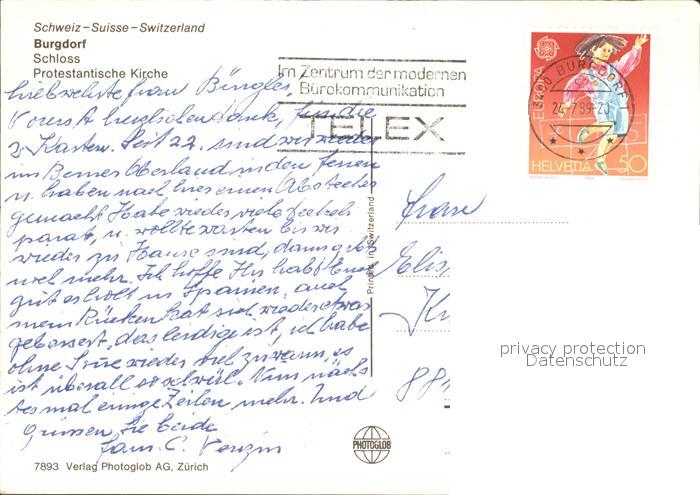 Schweiz-Suisse-Switzerland
Burgdorf
Schloss
Protestantische Kirche
Im Zentrum der modernen
Bürokommunikation
TELEX
3400 BURGDORF 1
24.7.89-20
EUROPA
CEPT
HELVETIA 50
1989
Frau
Printed in Switzerland
Liebwerteste Frau
Vorerst herzlichen Dank, für die
2 Karten. Seit 22. sind wir wieder
im Berner Oberland in den Ferien
u. haben nach hier einen Abstecher
gemacht. Habe wieder viele
parat, u. wollte warten bis wir
wieder zu Hause sind, dann gibts
viel mehr. Ich hoffe Ihr habt Euch
gut erholt in Spanien, auch
mein Rücken hat sich wieder etwas
gebessert, das leidige ist, ich habe
ohne wieder viel zu warm, es
ist überall so schwül. Nun nächs
tesmal einige Zeilen mehr. Und
Grüssen, Sie beide
Fam. C.
privacy protection
Datenschutz
PHOTOGLOB
7893 Verlag Photoglob AG, Zürich